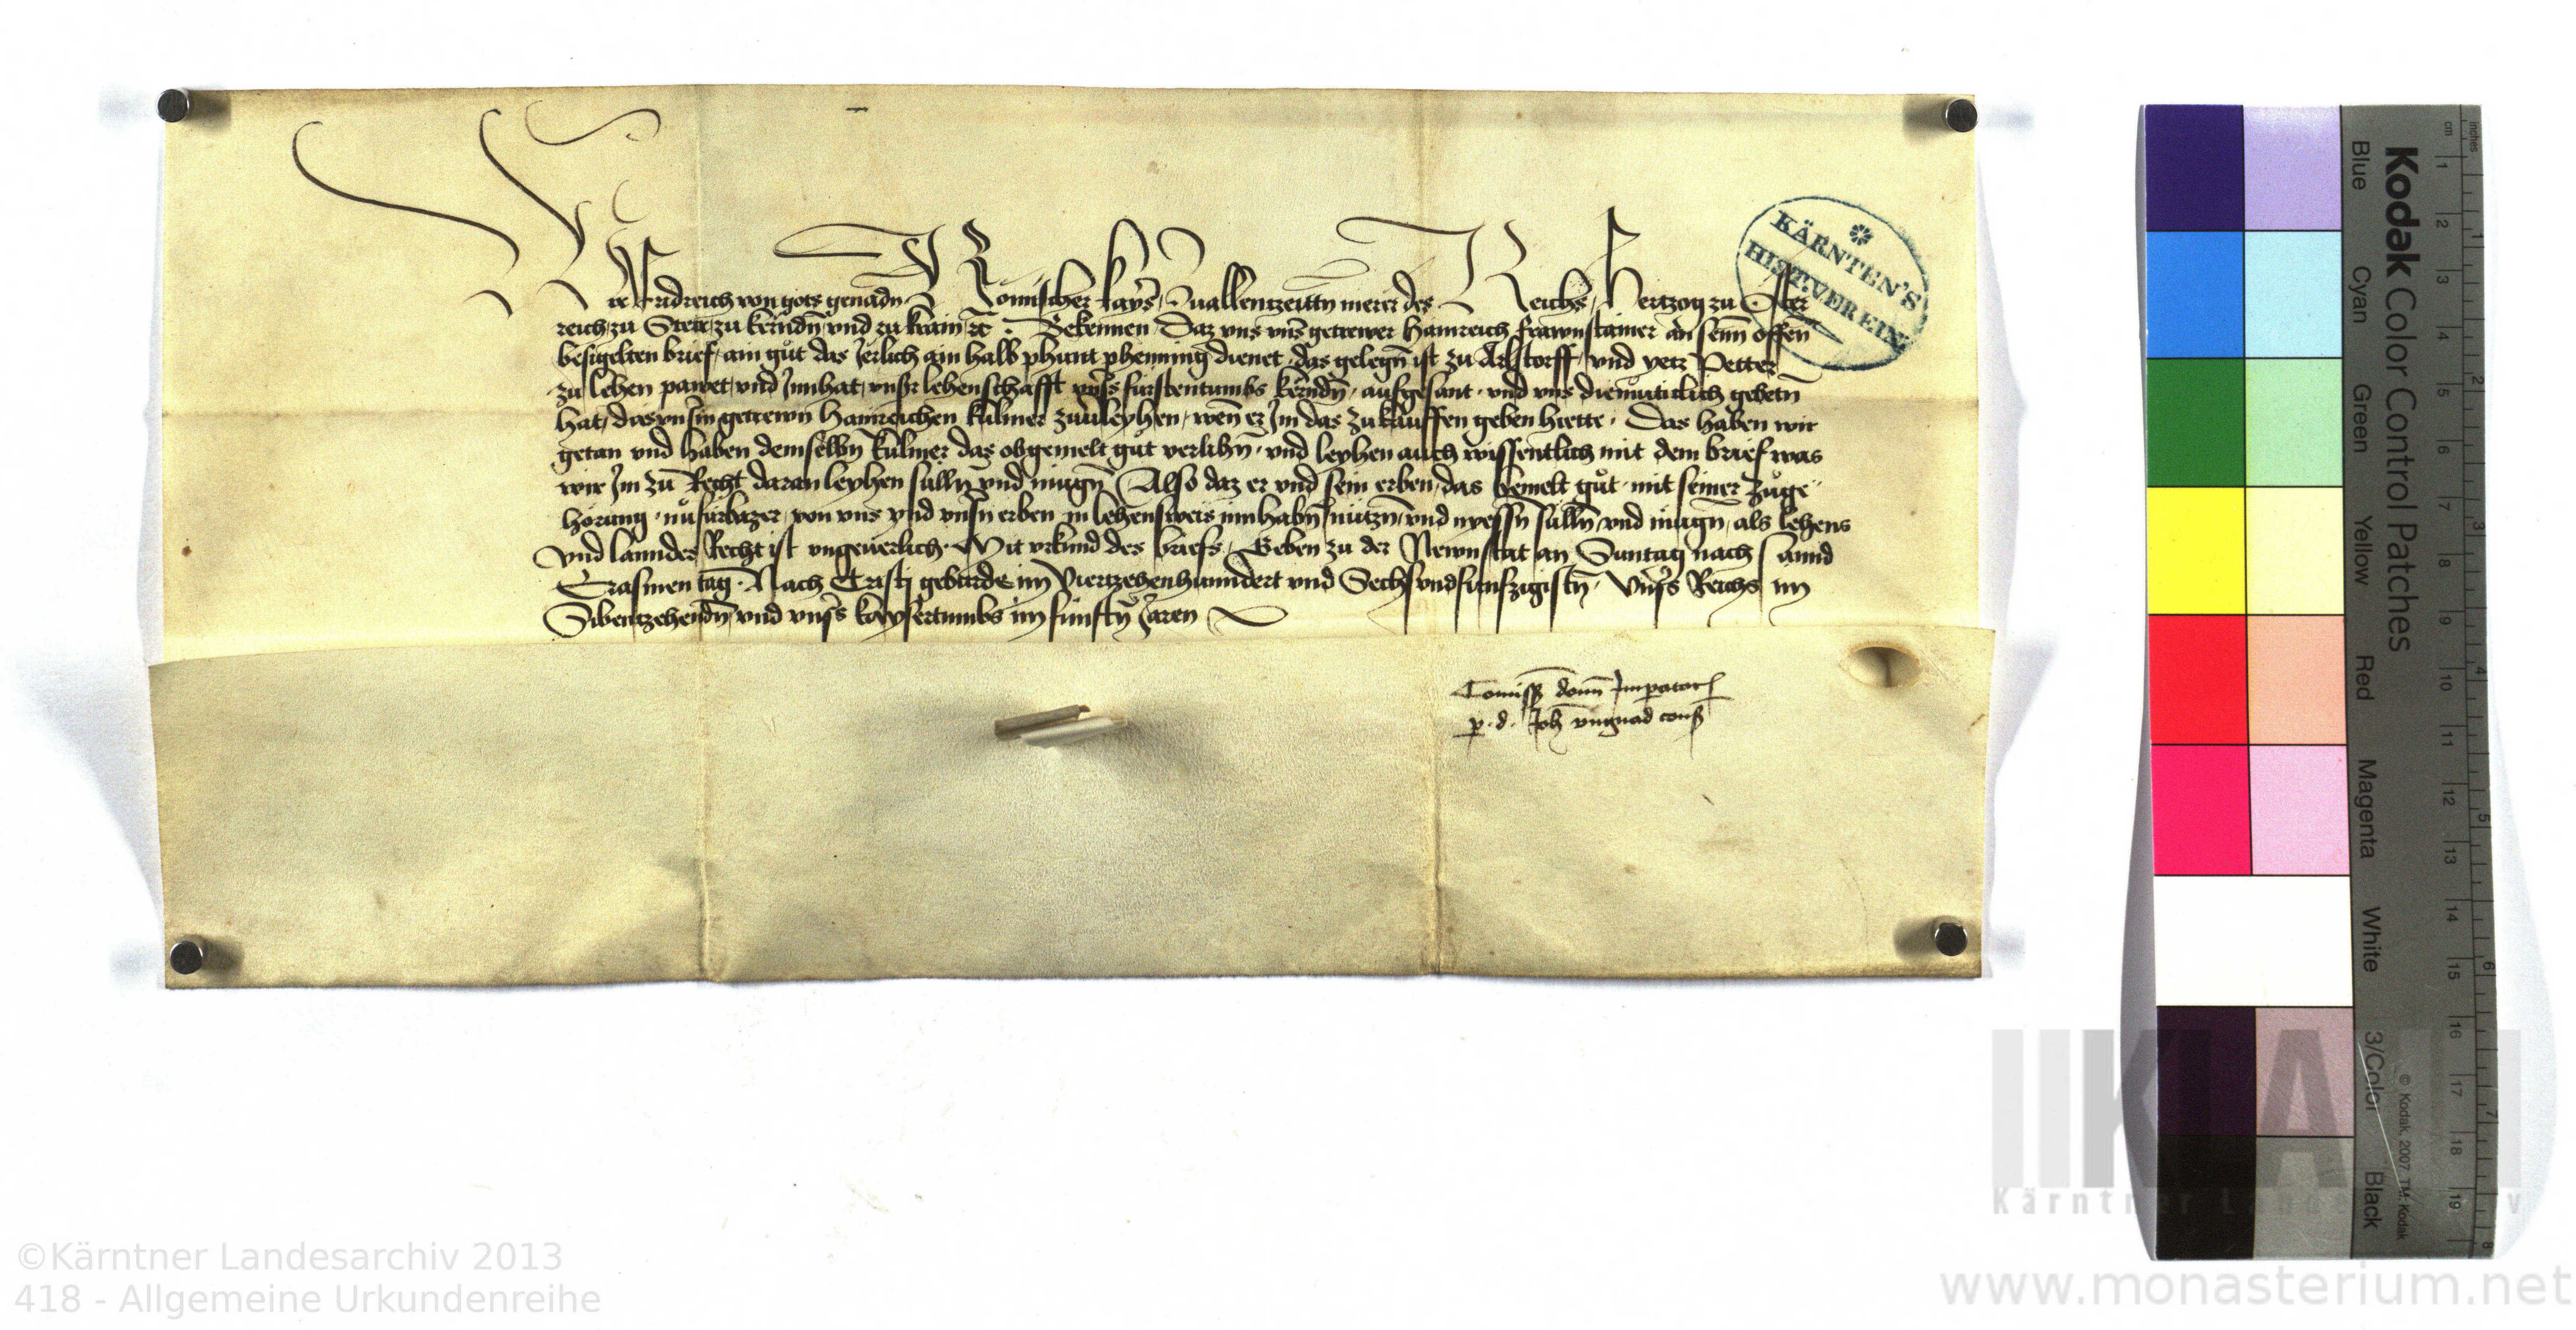 Wir Fridreich von gots genadn Romischer kayser zuallenntzeittn merer des Reichs hertzog zu Oster
reich zu Steir zu kerndn und zu krain etc Bekennen Daz uns unser getrewer Hainreich frawnstainer an seinn offen
besigelten brief ain gůt das Jerlich ain halb phunt phenning dienet das gelegn ist zu Arlstorff und yetz Petter
zu lehen pawet und Innhat unsr lehenschafft unsers fürstentumbs kerndn aufgesant und uns diemůticlich gebetn
hat das unserm getrewn Hainreichen kulmer zuuerleyhen wenn er Im das zukauffen geben hiette Das haben wir
getan und haben demselbn kulmer das obgemelt gůt verlihn und leyhen auch wissentlich mit dem brief was
wir Im zu Recht daran leyhen sulln und mugn Also daz er und sein erben das bemelt gůt mit seiner zůge
hörung nu fürbazer von uns und unsern erben in lehensweis innhabn nutzn und nyessn sulln und mugn als lehens
und lanndes Recht ist ungeuerlich Mit urkund des briefs Geben zu der Newnstat an Suntag nach sannd
Erasmen tag Nach Cristj geburde im Viertzehenhunndert und Sechsundfunfzigistn unsers Reichs im
Sibentzehendn und unsers kaysertumbs im fünfftn Jaren
Comissio domini Imperatoris
p. d. Joh ungnad cons
KÄRNTEN'S
HIST. VEREIN.
Kodak Color Control Patches
Blue Cyan Green Yellow Red Magenta White 3/Color Black
© Kodak, 2007 TM: Kodak
inches 1 2 3 4 5 6 7 8
cm 1 2 3 4 5 6 7 8 9 10 11 12 13 14 15 16 17 18 19
KLA
Kärntner Landesarchiv
©Kärntner Landesarchiv 2013
418 - Allgemeine Urkundenreihe
www.monasterium.net